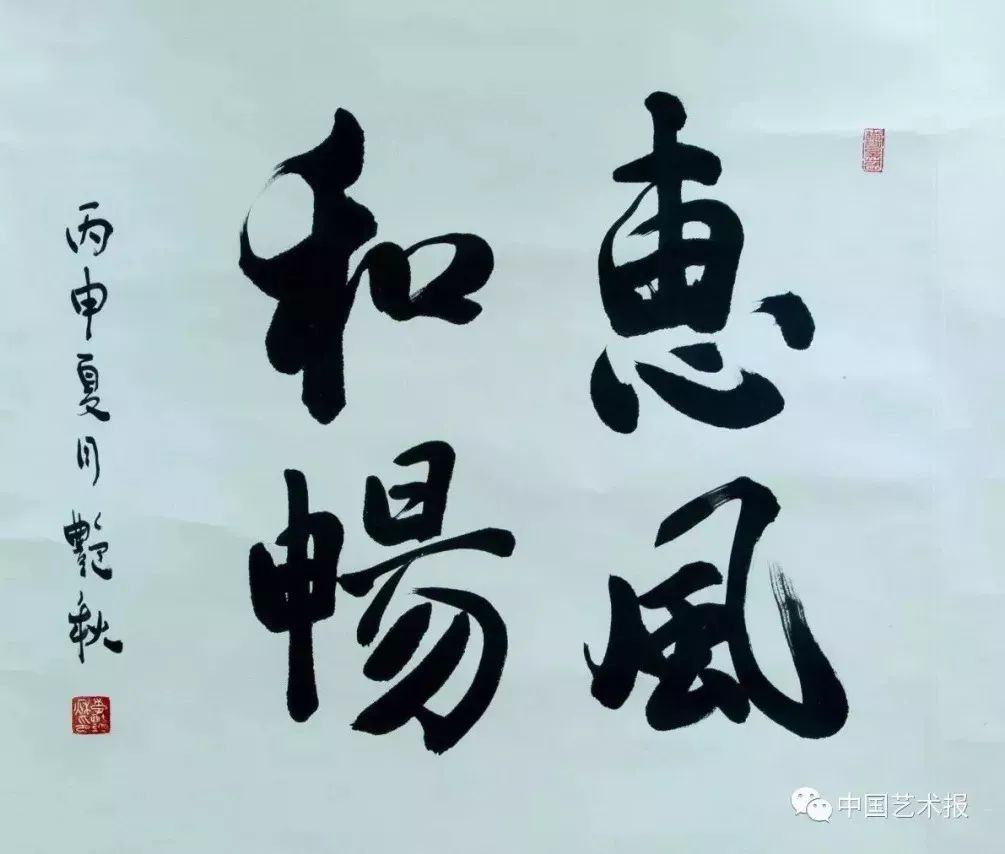 惠風
和暢
丙申夏月艷秋
中国艺术报